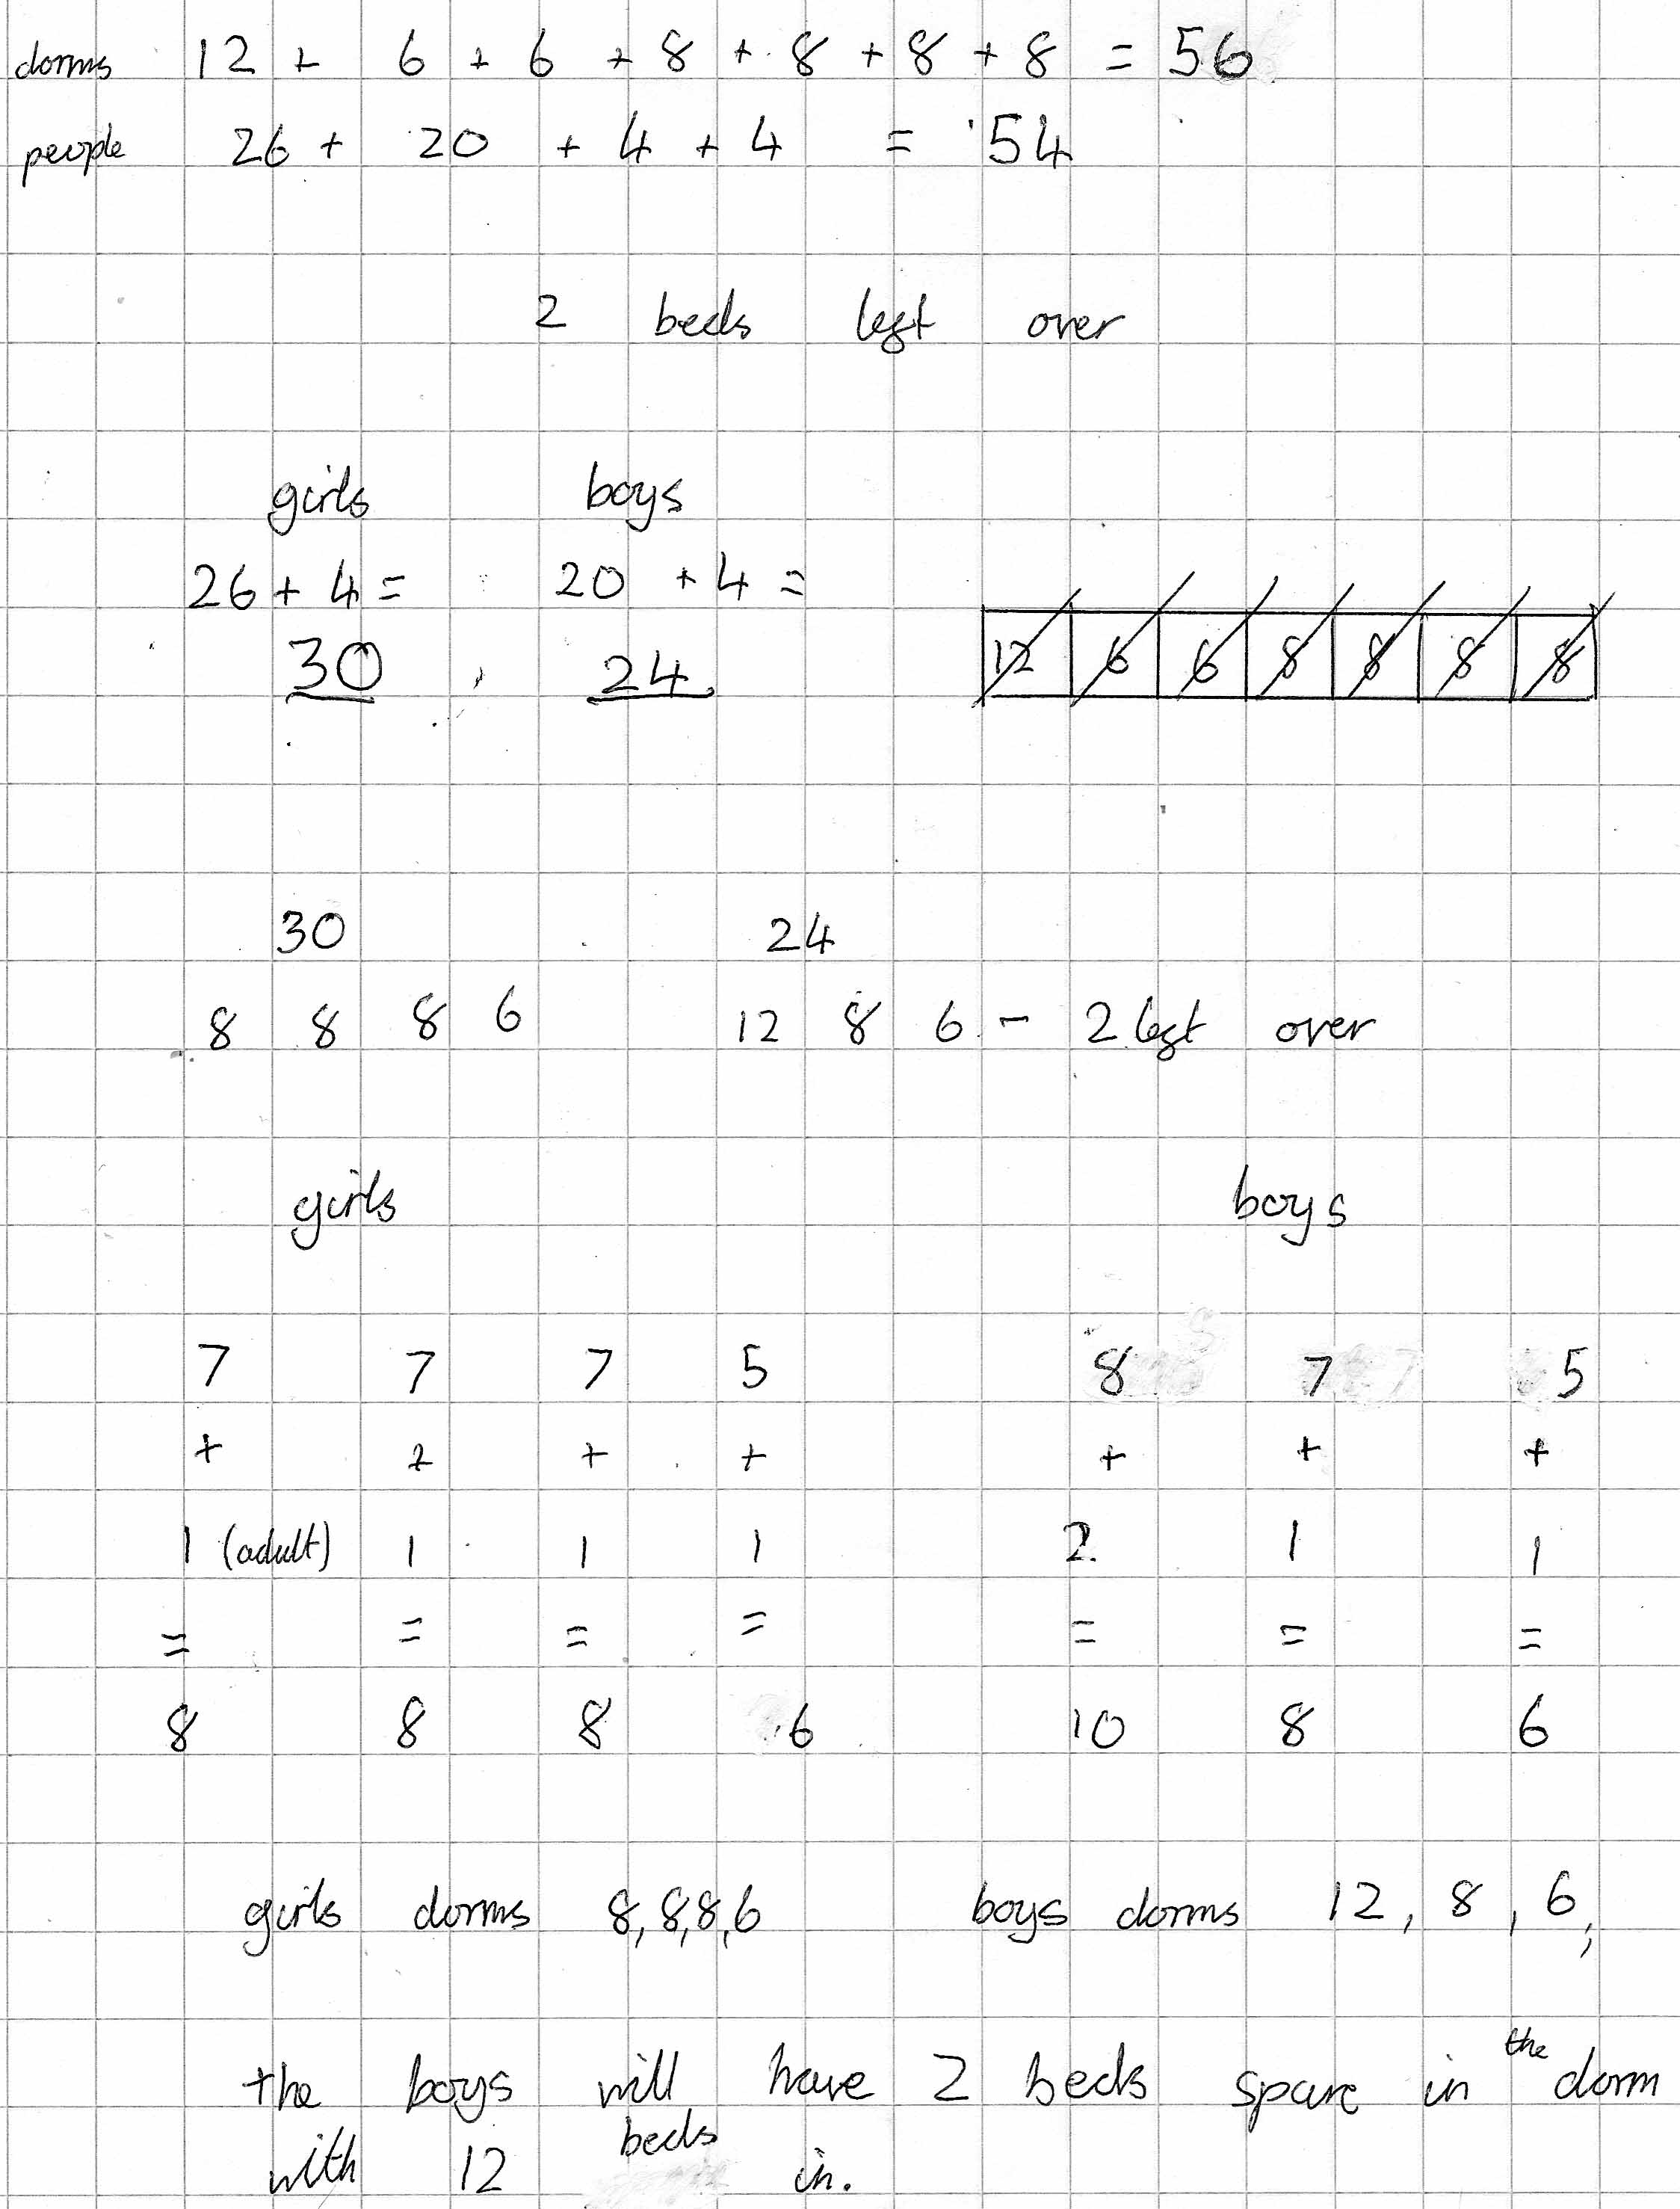 dorms 12 + 6 + 6 + 8 + 8 + 8 + 8 = 56
people 26 + 20 + 4 + 4 = 54
2 beds left over
girls boys
26 + 4 = 20 + 4 =
30 24
12 6 6 8 8 8 8
30 24
8 8 8 6 12 8 6 - 2 left over
girls boys
7 7 7 5 8 7 5
+ + + + + + +
1 (adult) 1 1 1 2 1 1
= = = = = = =
8 8 8 6 10 8 6
girls dorms 8,8,8,6 boys dorms 12, 8, 6,
the boys will have 2 beds spare in the dorm
with 12 beds in.